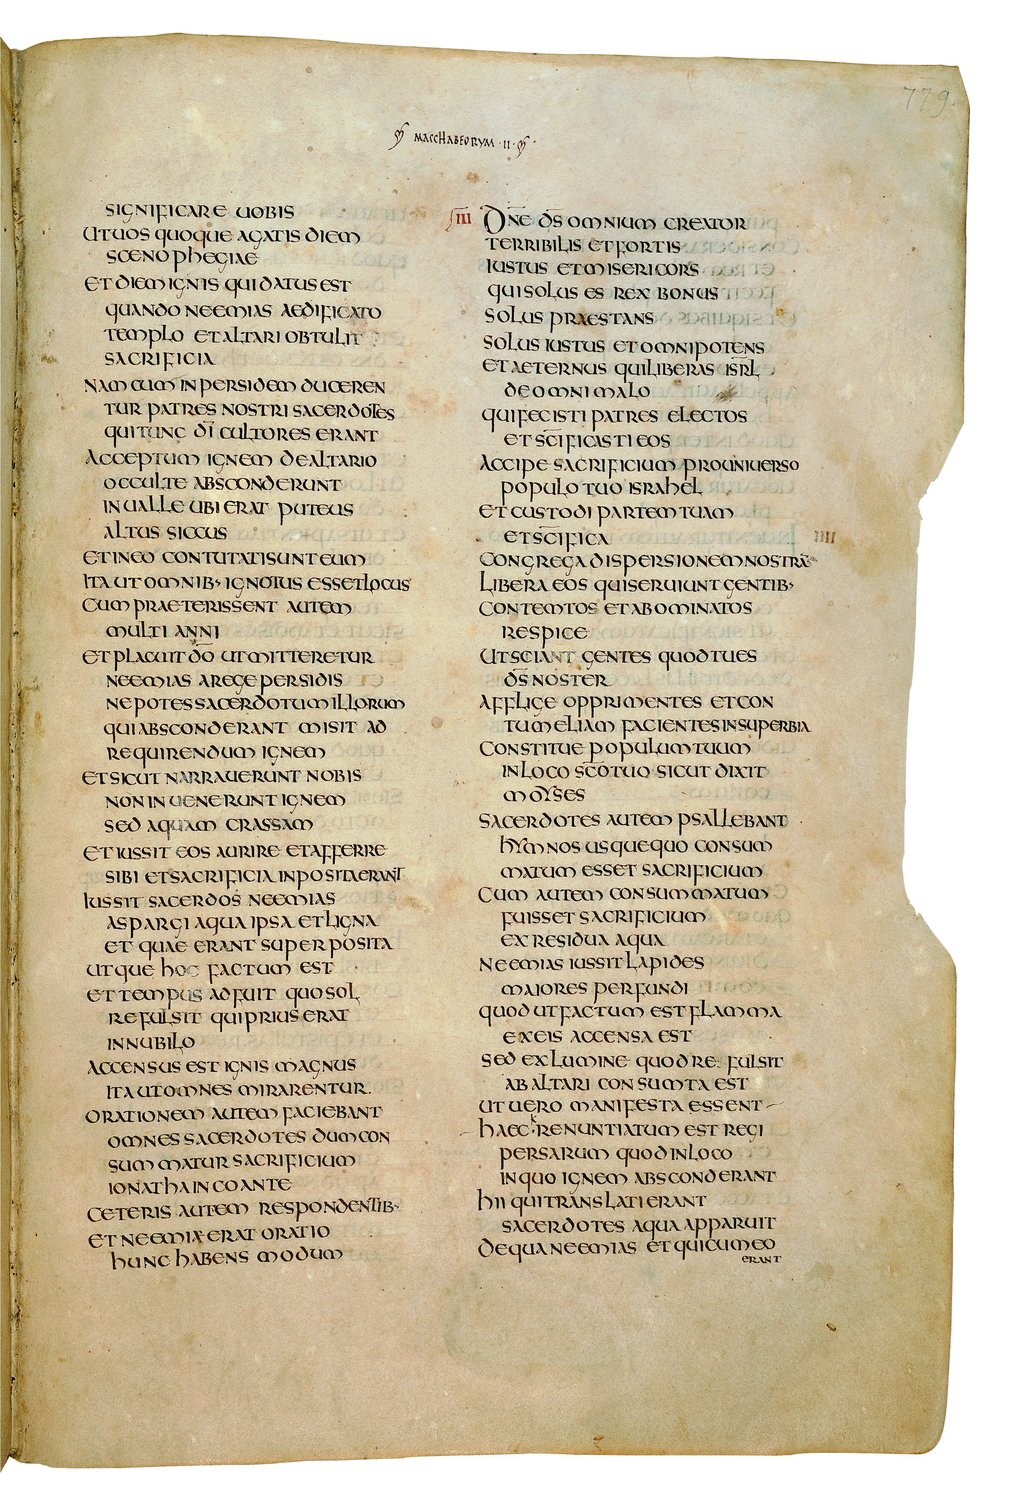 779
MACCHABEORUM · II ·
SIGNIFICARE UOBIS
UTUOS QUOQUE AGATIS DIEM
SCENOPHEGIAE
ET DIEM IGNIS QUI DATUS EST
QUANDO NEEMIAS AEDIFICATO
TEMPLO ET ALTARI OBTULIT
SACRIFICIA
NAM CUM IN PERSIDEM DUCEREN
TUR PATRES NOSTRI SACERDOTES
QUI TUNC DĪ CULTORES ERANT
ACCEPTUM IGNEM DE ALTARIO
OCCULTE ABSCONDERUNT
IN UALLE UBI ERAT PUTEUS
ALTUS SICCUS
ET IN EO CONTUTATI SUNT EUM
ITA UT OMNIB· IGNOTUS ESSET LOCUS
CUM PRAETERISSENT AUTEM
MULTI ANNI
ET PLACUIT DŌ UT MITTERETUR
NEEMIAS A REGE PERSIDIS
NEPOTES SACERDOTUM ILLORUM
QUI ABSCONDERANT MISIT AD
REQUIRENDUM IGNEM
ET SICUT NARRAUERUNT NOBIS
NON INUENERUNT IGNEM
SED AQUAM CRASSAM
ET IUSSIT EOS AURIRE ET AFFERRE
SIBI ET SACRIFICIA INPOSITA ERANT
IUSSIT SACERDOS NEEMIAS
ASPARGI AQUA IPSA ET LIGNA
ET QUAE ERANT SUPERPOSITA
UTQUE HOC FACTUM EST
ET TEMPUS ADFUIT QUO SOL
REFULSIT QUI PRIUS ERAT
IN NUBILO
ACCENSUS EST IGNIS MAGNUS
ITA UT OMNES MIRARENTUR
ORATIONEM AUTEM FACIEBANT
OMNES SACERDOTES DUM CON
SUMMATUR SACRIFICIUM
IONATHA INCOANTE
CETERIS AUTEM RESPONDENTIB·
ET NEEMIAE ERAT ORATIO
HUNC HABENS MODUM
III DNE DS OMNIUM CREATOR
TERRIBILIS ET FORTIS
IUSTUS ET MISERICORS
QUI SOLUS ES REX BONUS
SOLUS PRAESTANS
SOLUS IUSTUS ET OMNIPOTENS
ET AETERNUS QUI LIBERAS ISRL
DE OMNI MALO
QUI FECISTI PATRES ELECTOS
ET SCIFICASTI EOS
ACCIPE SACRIFICIUM PRO UNIUERSO
POPULO TUO ISRAHEL
ET CUSTODI PARTEM TUAM
ET SCIFICA
CONGREGA DISPERSIONEM NOSTRĀ
LIBERA EOS QUI SERUIUNT GENTIB·
CONTEMTOS ET ABOMINATOS
RESPICE
UT SCIANT GENTES QUOD TU ES
DS NOSTER
AFFLIGE OPPRIMENTES ET CON
TUMELIAM FACIENTES IN SUPERBIA
CONSTITUE POPULUM TUUM
IN LOCO SCO TUO SICUT DIXIT
MOYSES
SACERDOTES AUTEM PSALLEBANT
HYMNOS USQUEQUO CONSUM
MATUM ESSET SACRIFICIUM
CUM AUTEM CONSUMMATUM
FUISSET SACRIFICIUM
EX RESIDUA AQUA
NEEMIAS IUSSIT LAPIDES
MAIORES PERFUNDI
QUOD UT FACTUM EST FLAMMA
EX EIS ACCENSA EST
SED EX LUMINE QUOD REFULSIT
AB ALTARI CONSUMTA EST
UT UERO MANIFESTA ESSENT
HAEC RENUNTIATUM EST REGI
PERSARUM QUOD IN LOCO
IN QUO IGNEM ABSCONDERANT
HII QUI TRANSLATI ERANT
SACERDOTES AQUA APPARUIT
DE QUA NEEMIAS ET QUI CUM EO
ERANT